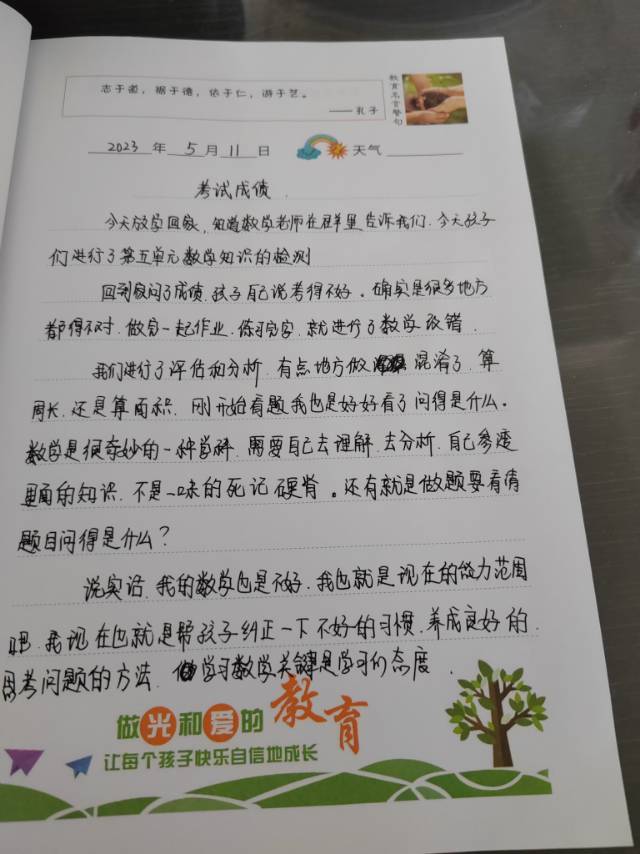 志于道，据于德，依于仁，游于艺。
——孔子
教育名言警句
2023 年 5 月 11 日 天气
考试成绩
今天放学回家，知道数学老师在群里告诉我们，今天孩子
们进行了第五单元数学知识的检测
回到家问了成绩，孩子自己说考得不好。确实是很多地方
都得不对，做完一起作业，练习完字，就进行了数学改错，
我们进行了评估和分析，有点地方做混淆了，算
周长，还是算面积，刚开始看题我也是好好看了问得是什么。
数学是很奇妙的一种学科，需要自己去理解，去分析，自己参透
里面的知识，不是一味的死记硬背。还有就是做题要看清
题目问得是什么？
说实话，我的数学也是不好，我也就是现在的能力范围
吧，我现在也就是帮孩子纠正一下不好的习惯，养成良好的，
思考问题的方法，学习数学关键是学习的态度，
做光和爱的教育
让每个孩子快乐自信地成长